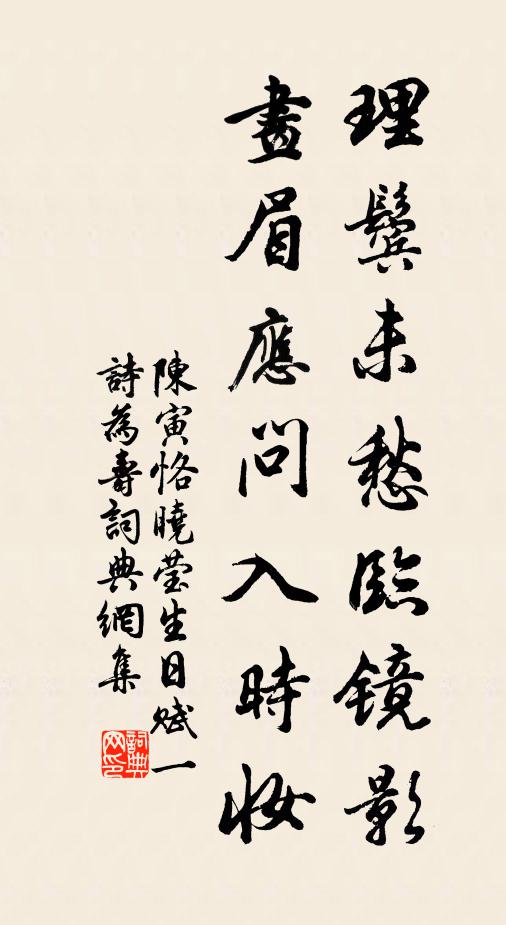 理鬢未愁臨鏡影
畫眉應問入時妝
陳寅恪曉瑩生日賦一
詩為壽詞典網集
詞典
网印